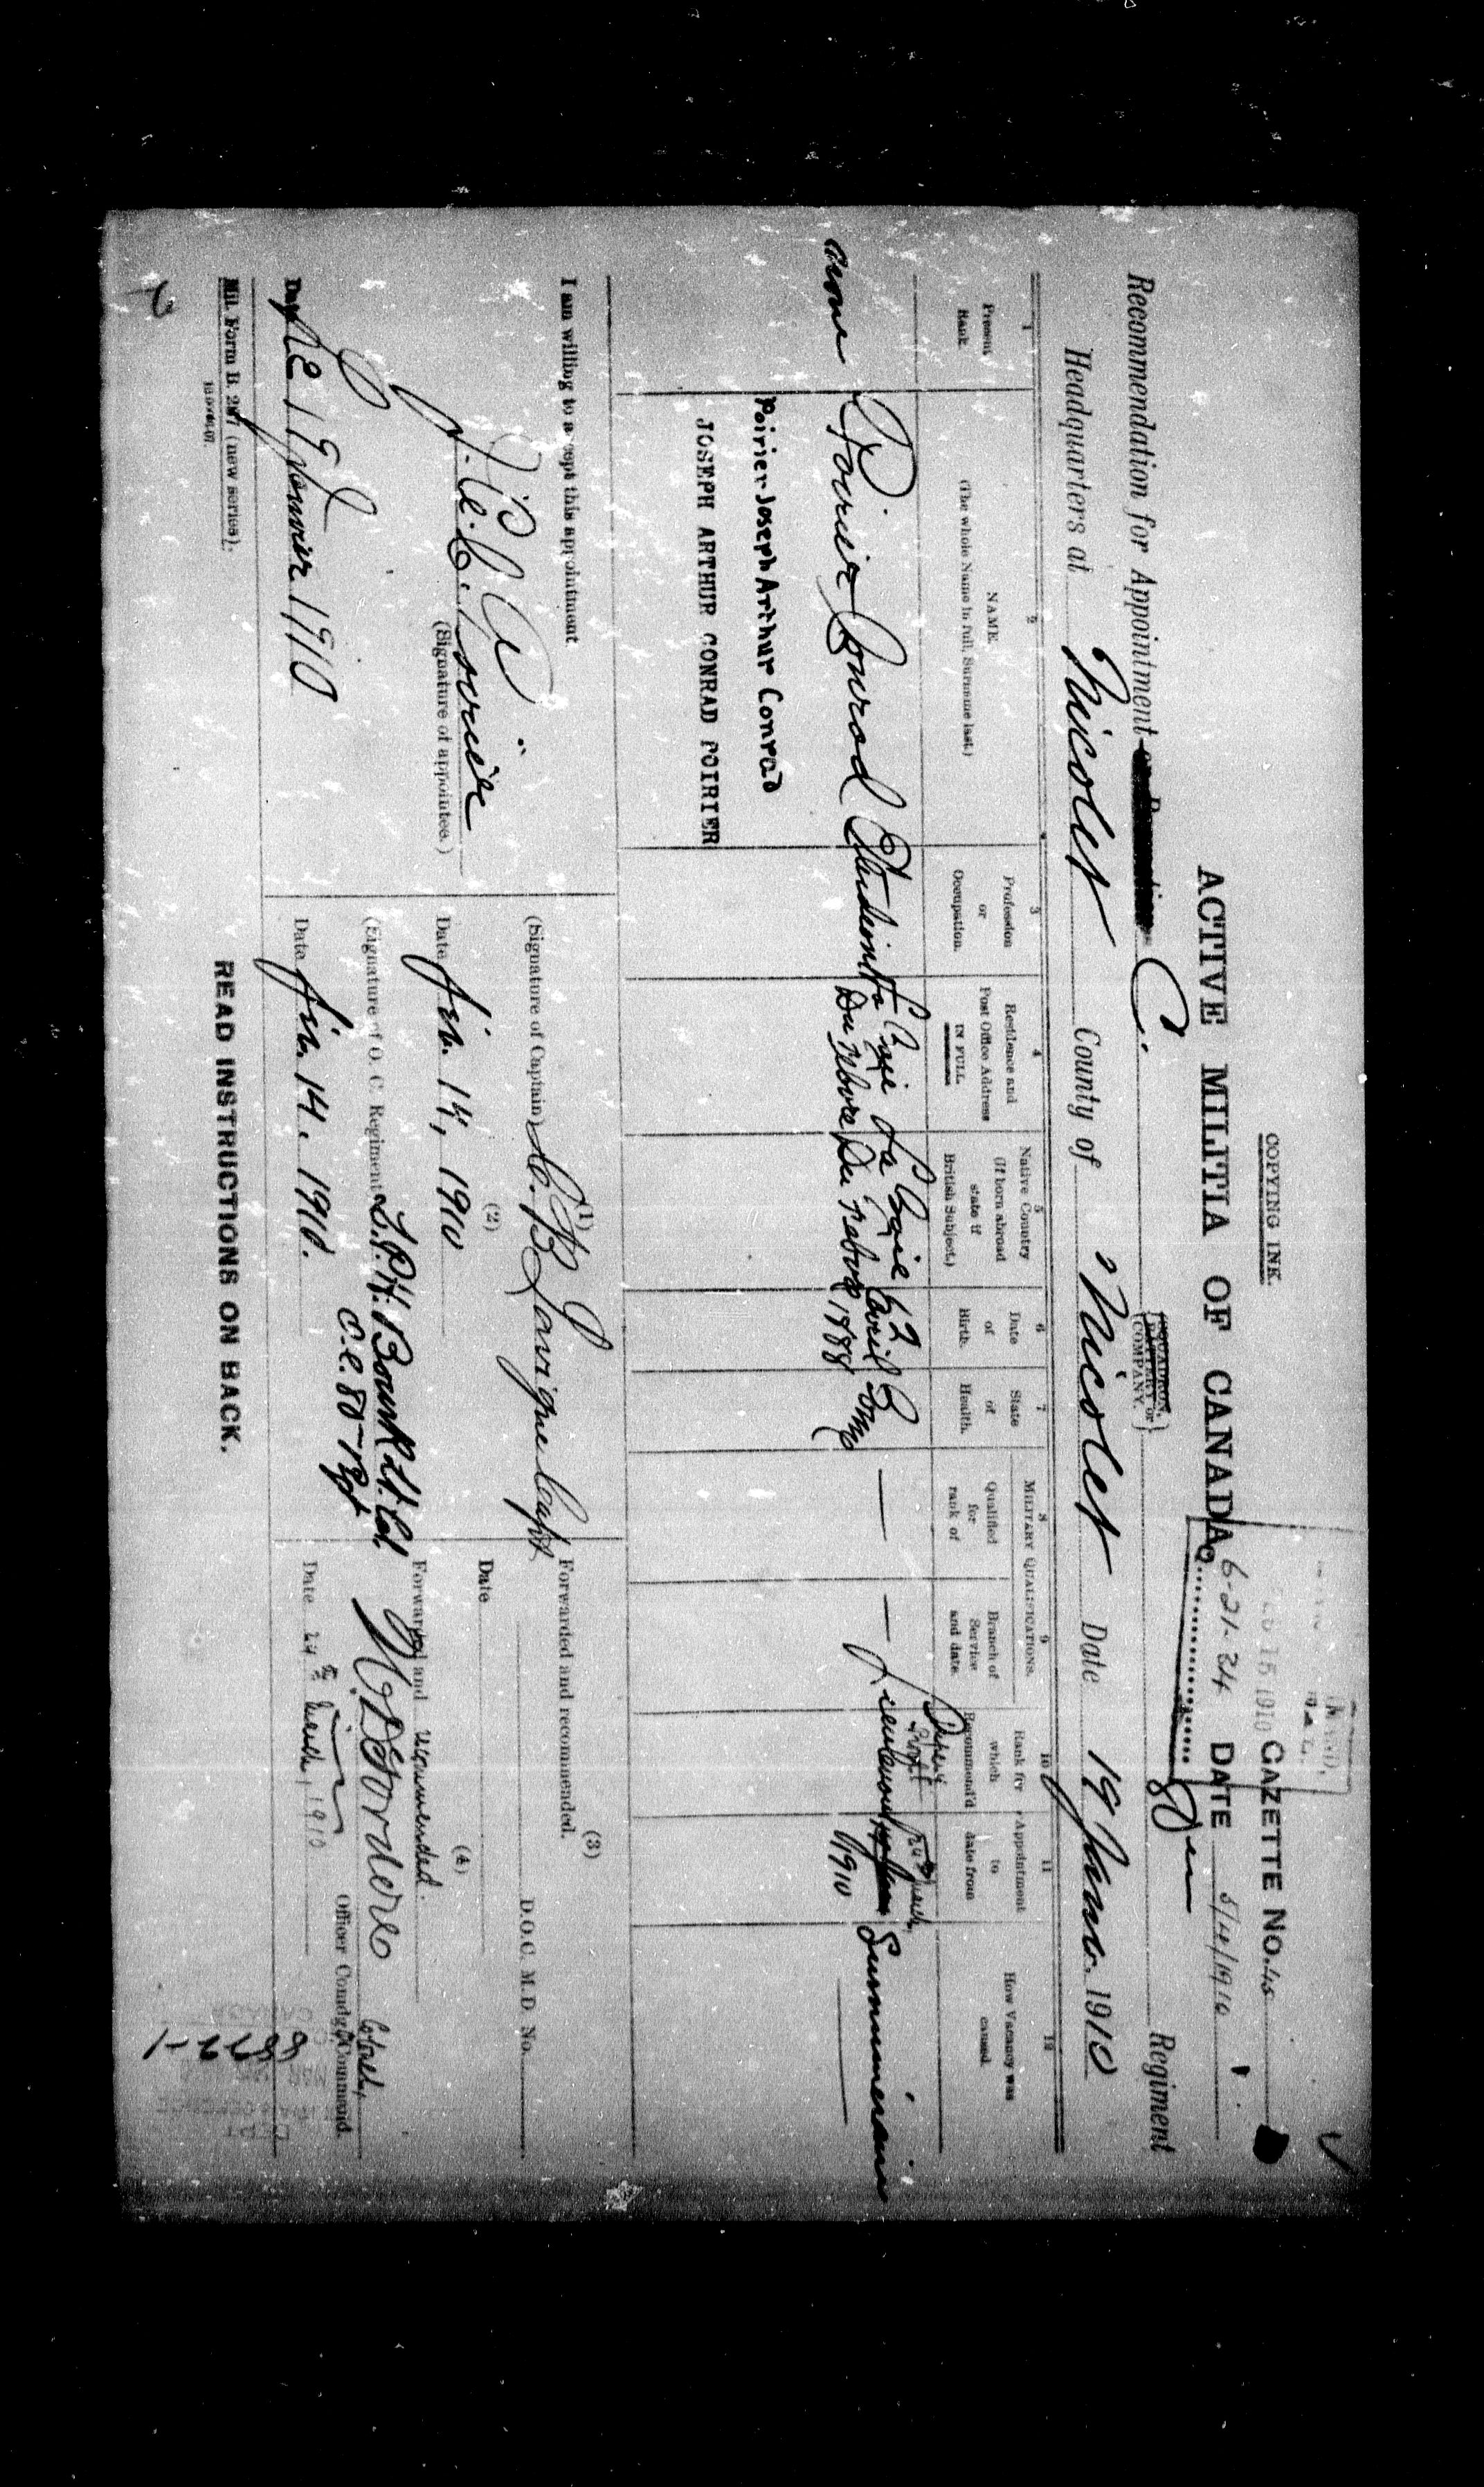 COPYING INK.
GAZETTE NO. 40
FEB 15 1910
6-21-24 DATE 5/4/1910
ACTIVE MILITIA OF CANADA
Recommendation for Appointment C. {SQUADRON, BATTERY or COMPANY.} 80 Regiment
Headquarters at Nicolet County of Nicolet Date 19 Janv. 1910
1 Present Rank
2 NAME. (The whole Name in full, Surname last.)
3 Profession or Occupation.
4 Residence and Post Office Address IN FULL.
5 Native Country (If born abroad state if British Subject.)
6 Date of Birth.
7 State of Health.
MILITARY QUALIFICATIONS.
8 Qualified for rank of
9 Branch of Service and date.
10 Rank for which Recommend'd
11 Appointment to date from
12 How Vacancy was caused.
Poirier Conrad Etudiant La Baie La Baie 2 avril Bonne — — Lieutenant Surnuméraire
Du Febvre Du Febvre 1888 1910
Poirier Joseph Arthur Conrad
JOSEPH ARTHUR CONRAD POIRIER
I am willing to accept this appointment
J. A. C. Poirier
(Signature of appointee.)
Date le 19 Janvier 1910
Mil. Form B. 287 (new series).
(1)
(Signature of Captain) Lavigne Capt
(2)
Date 14, 1910
(Signature of O. C. Regiment) Lt. Col
C.C. 80 Rgt
Date 14. 1910.
Forwarded and recommended.
(3)
D.O.C. M.D. No.
Date
Forwarded and recommended.
(4)
Colonel,
Officer Comdg. Command.
Date 24th March, 1910
READ INSTRUCTIONS ON BACK.
8822-1